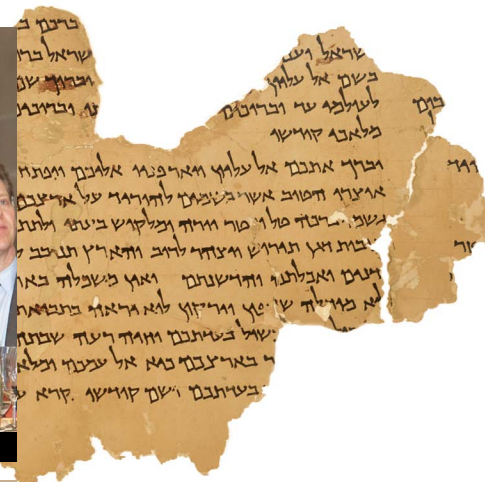 ברכם ב
שראל וענ שראל ברו
בשם אל עליון וברוך שם
לעולמי עד וברוכים וברוכים
מלאכי קודשו
יברך אתכם אל עליון ויאר פניו אליכם ויפתח
אוצרו הטוב אשר בשמים להוריד על ארצכם
גשמי ברכה טל ומטר יורה ומלקוש בעתו ולתת
דגן תירוש ויצהר לרוב והארץ תנובב ל
דנים ואכלתם והדשנתם ואין משכלה באר
לא מוחלה ש פון וירקון לוא יראה בתבואת
שול בעדתכם וחיה רעה שבתה
ר בארצכם כיא אל עמכם ומלא
בעדתכם ושם קודשו נקרא ע